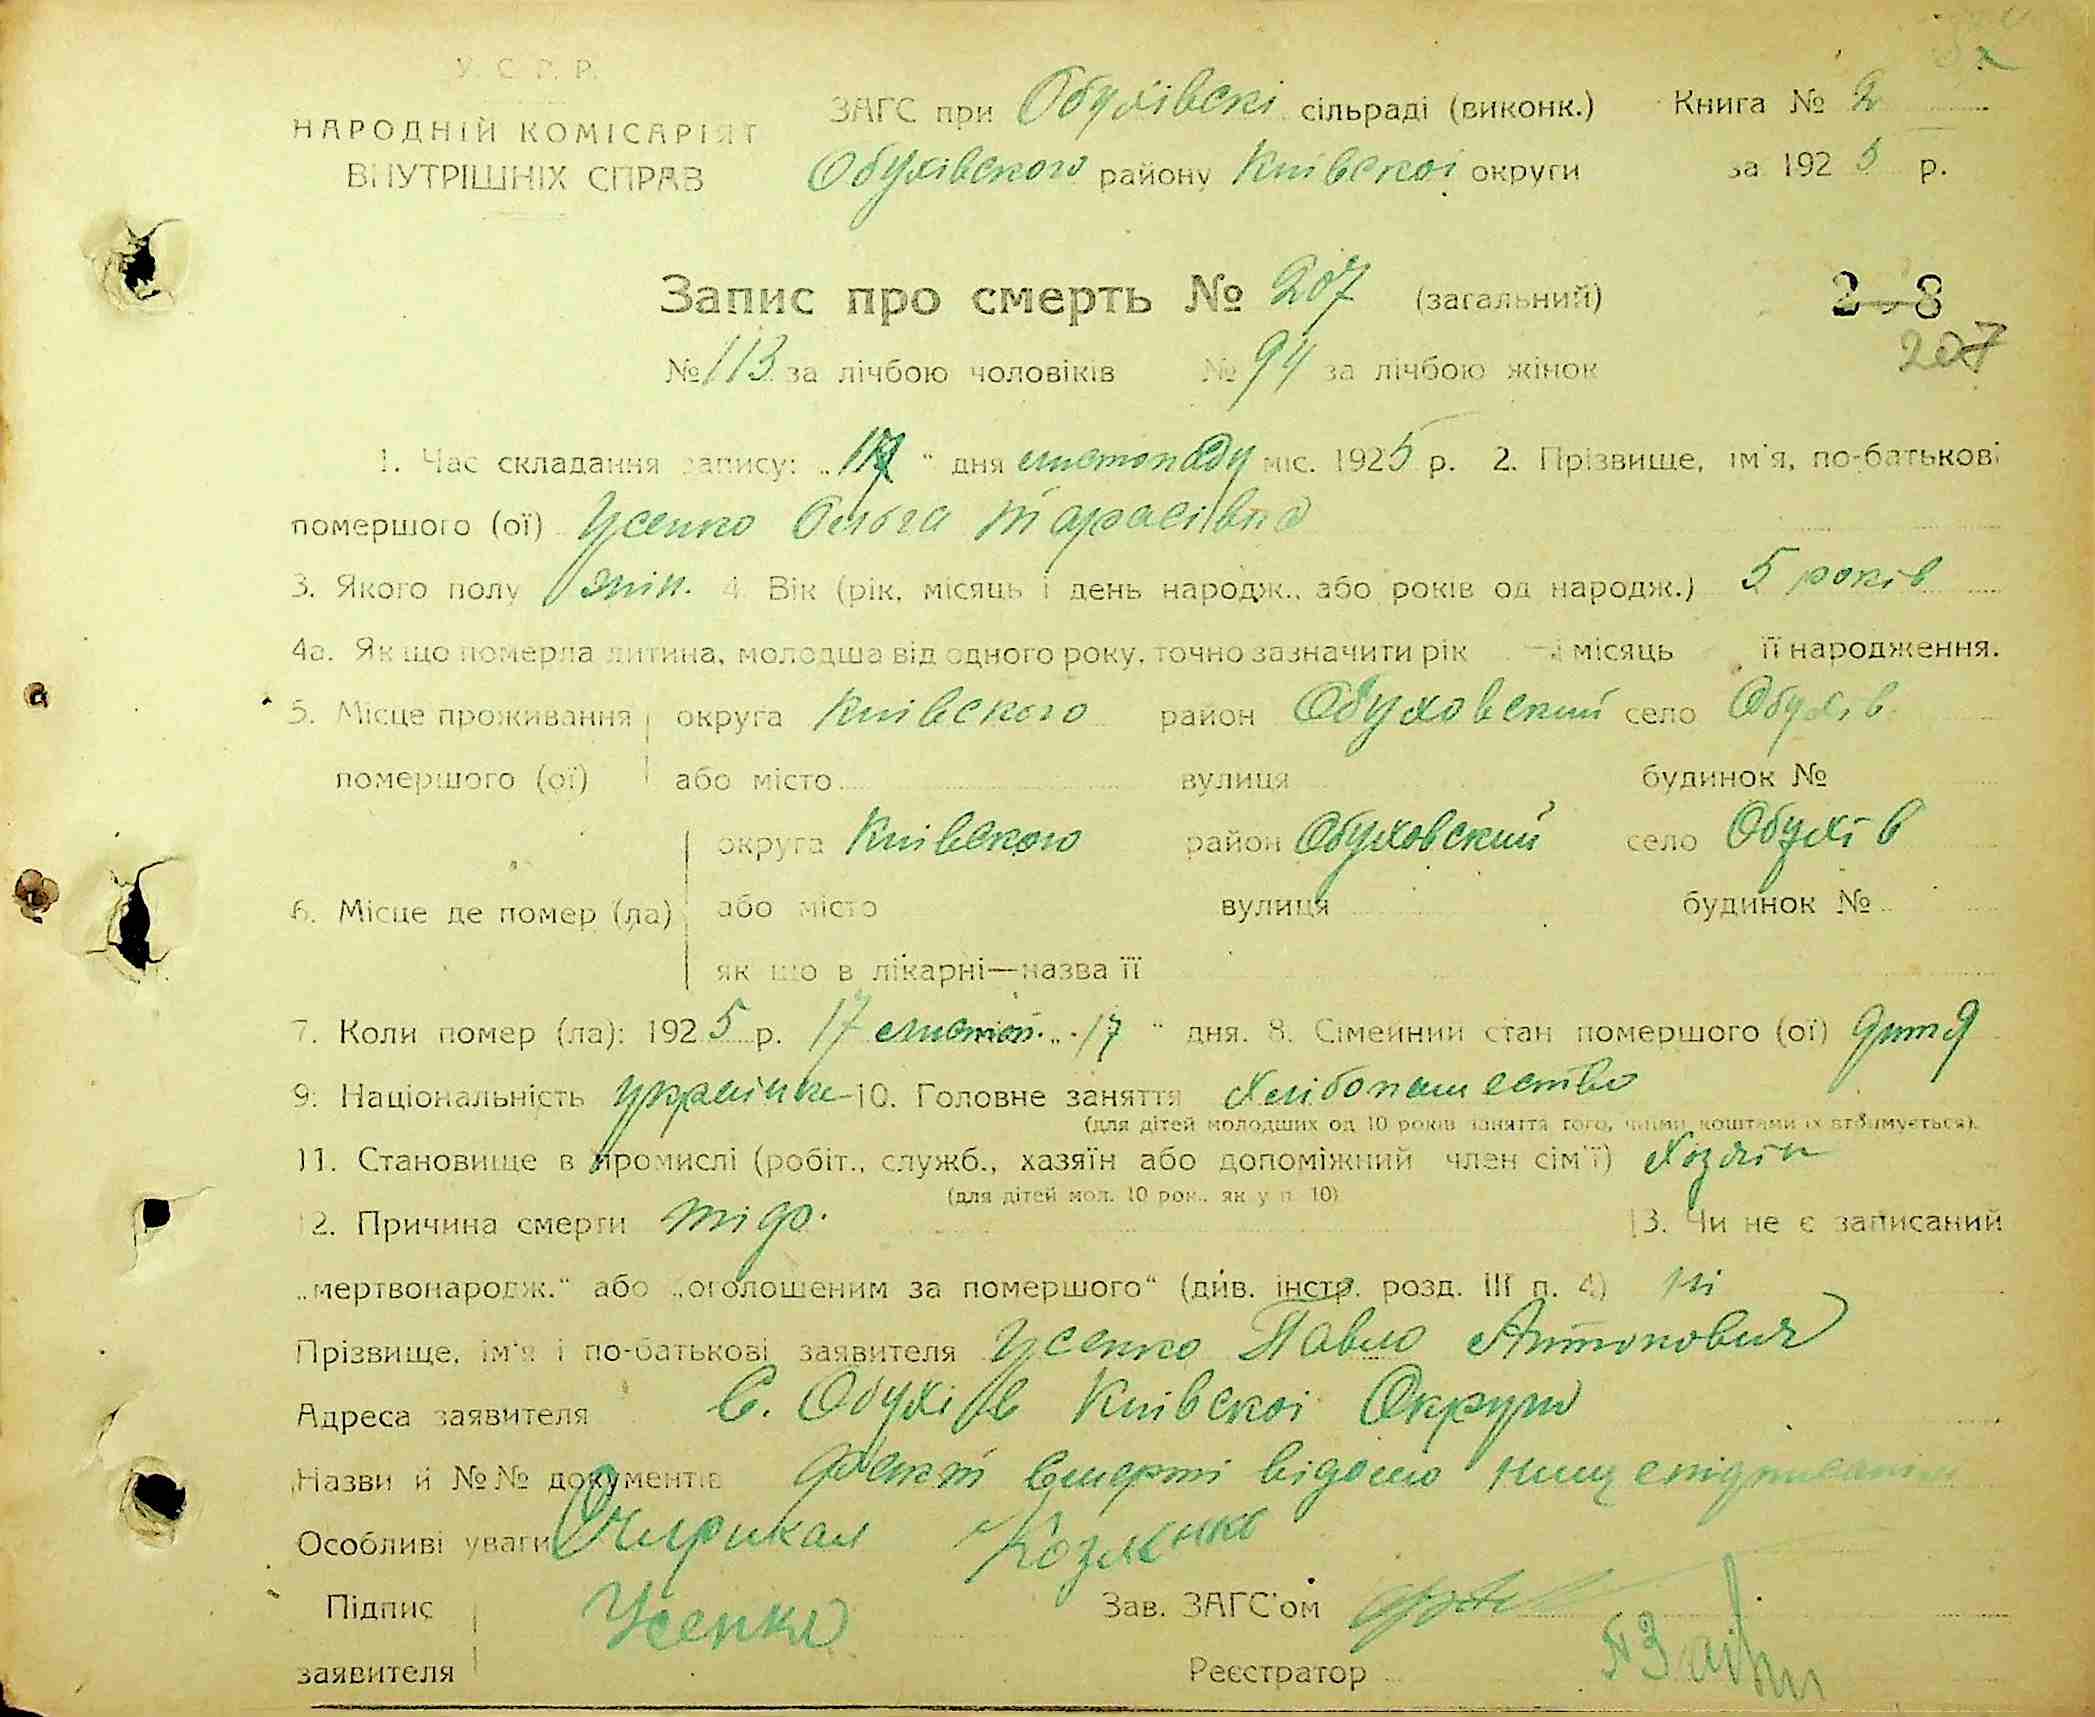 У. С. Р. Р.
НАРОДНІЙ КОМІСАРІЯТ
ВНУТРІШНІХ СПРАВ
ЗАГС при Обухівскі сільраді (виконк.)
Обухівского району Київскоі округи
Книга № 2
за 1925 р.
Запис про смерть № 207 (загальний)
2—8
207
№ 113 за лічбою чоловіків № 94 за лічбою жінок
1. Час складання запису: „17“ дня листопаду міс. 1925 р. 2. Прізвище, ім'я, по-батькові
помершого (ої) Усенко Ольга Тарасівна
3. Якого полу жін. 4. Вік (рік, місяць і день народж., або років од народж.) 5 років
4а. Як що померла дитина, молодша від одного року, точно зазначити рік і місяць її народження.
5. Місце проживання округа Київского район Обуховский село Обухів
помершого (ої) або місто вулиця будинок №
округа Київского район Обуховский село Обухів
6. Місце де помер (ла) або місто вулиця будинок №
як що в лікарні—назва її
7. Коли помер (ла): 1925 р. 17 листоп. „17“ дня. 8. Сімейний стан помершого (ої) дитя
9. Національність українка 10. Головне заняття Хлібопашество
(для дітей молодших од 10 років заняття того, чиїми коштами їх втримується).
11. Становище в промислі (робіт., служб., хазяїн або допоміжний член сім'ї) Хозяїн
(для дітей мол. 10 рок., як у п. 10)
12. Причина смерти тиф. 13. Чи не є записаний
„мертвонародж.“ або „оголошеним за помершого“ (див. інстр. розд. III п. 4) ні
Прізвище, ім'я і по-батькові заявителя Усенко Павло Антонович
Адреса заявителя С. Обухів Київскоі Округи
Назви й №№ документів факт смерті відомо
Особливі уваги
Підпис Усенко Зав. ЗАГС'ом
заявителя Реєстратор